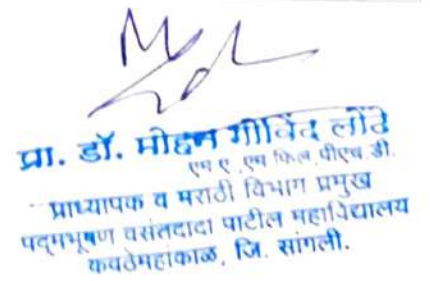 प्रा. डॉ. मोहन गोविंद लोंढे
एम ए ,एम फिल,पीएच डी.
प्राध्यापक व मराठी विभाग प्रमुख
पद्मभूषण वसंतदादा पाटील महाविद्यालय
कवठेमहांकाळ, जि. सांगली.